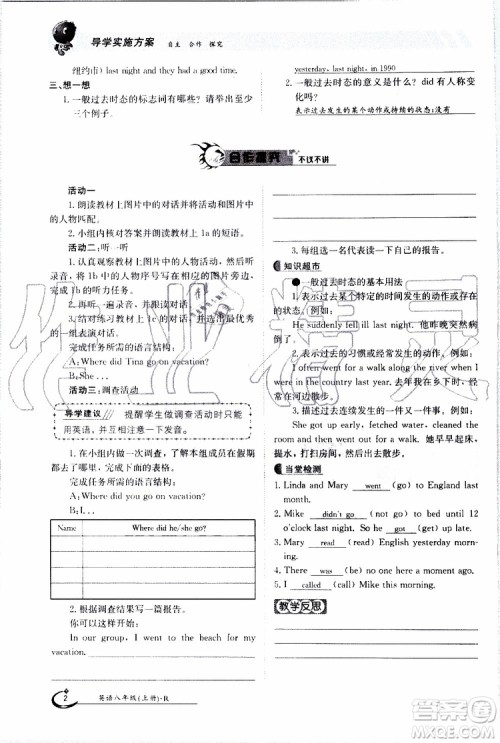 导学实施方案 自主 合作 探究
纽约市) last night and they had a good time.
三、想一想
1. 一般过去时态的标志词有哪些？请举出至少三个例子。
yesterday, last night, in 1990
2. 一般过去时态的意义是什么？did 有人称变化吗？
表示过去发生的某个动作或持续的状态;没有
合作探究 不议不讲
活动一
1. 认真阅读教材上图片中的对话并将图片中的人物匹配。
2. 小组内核对答案并朗读教材上 1a 的短语。
活动二：听一听
1. 朗读教材上图片中人物的对话，然后听录音，将 1b 中的人物序号写到正确的图片中 1b 的活动中。
2. 再听一遍录音，并模仿。
3. 结对练习对话,各小组选取优秀的一组表演对话。
完成任务所需的语言结构：
A: Where did Tina go on vacation?
B: She...
活动三：调查活动
导学建议 提醒学生做调查活动时只能用英语，并做示范一下发音。
1. 在小组内做一个调查，了解本组成员在暑假期间去哪儿了，看谁完成得最快。
完成任务所需的语言结构：
A: Where did you go on vacation?
B: I...
Name Where did he/she go?
2. 将调查结果写一份报告。
你可以这样开始：
In our group, I went to the beach for my vacation.
3. 每组选一名代表读一下自己的报告。
知识超市
●一般过去时态的基本用法
1. 表示过去某个特定的时间发生的动作或存在的状态。例如：
He suddenly fell ill last night. 他昨晚突然病倒了。
2. 表示过去的习惯或经常发生的动作。例如：
I often went for a walk along the river when I was free. 过去有空时，我经常沿着河边散步。
3. 描述过去相继发生的几个动作。例如：
She got up early, fetched water, cleaned the room and then went for a walk. 她早早起床，提水，打扫房间，然后去散步。
当堂检测
1. Linda and Mary went (go) to England last month.
2. Mike didn't go (not go) to bed until 12 o'clock last night. So he got (get) up late.
3. Mary read (read) English yesterday morning.
4. There was (be) no one here a moment ago.
5. I called (call) Mike this morning.
教学反思
2 英语八年级(上册)·R
作业精灵